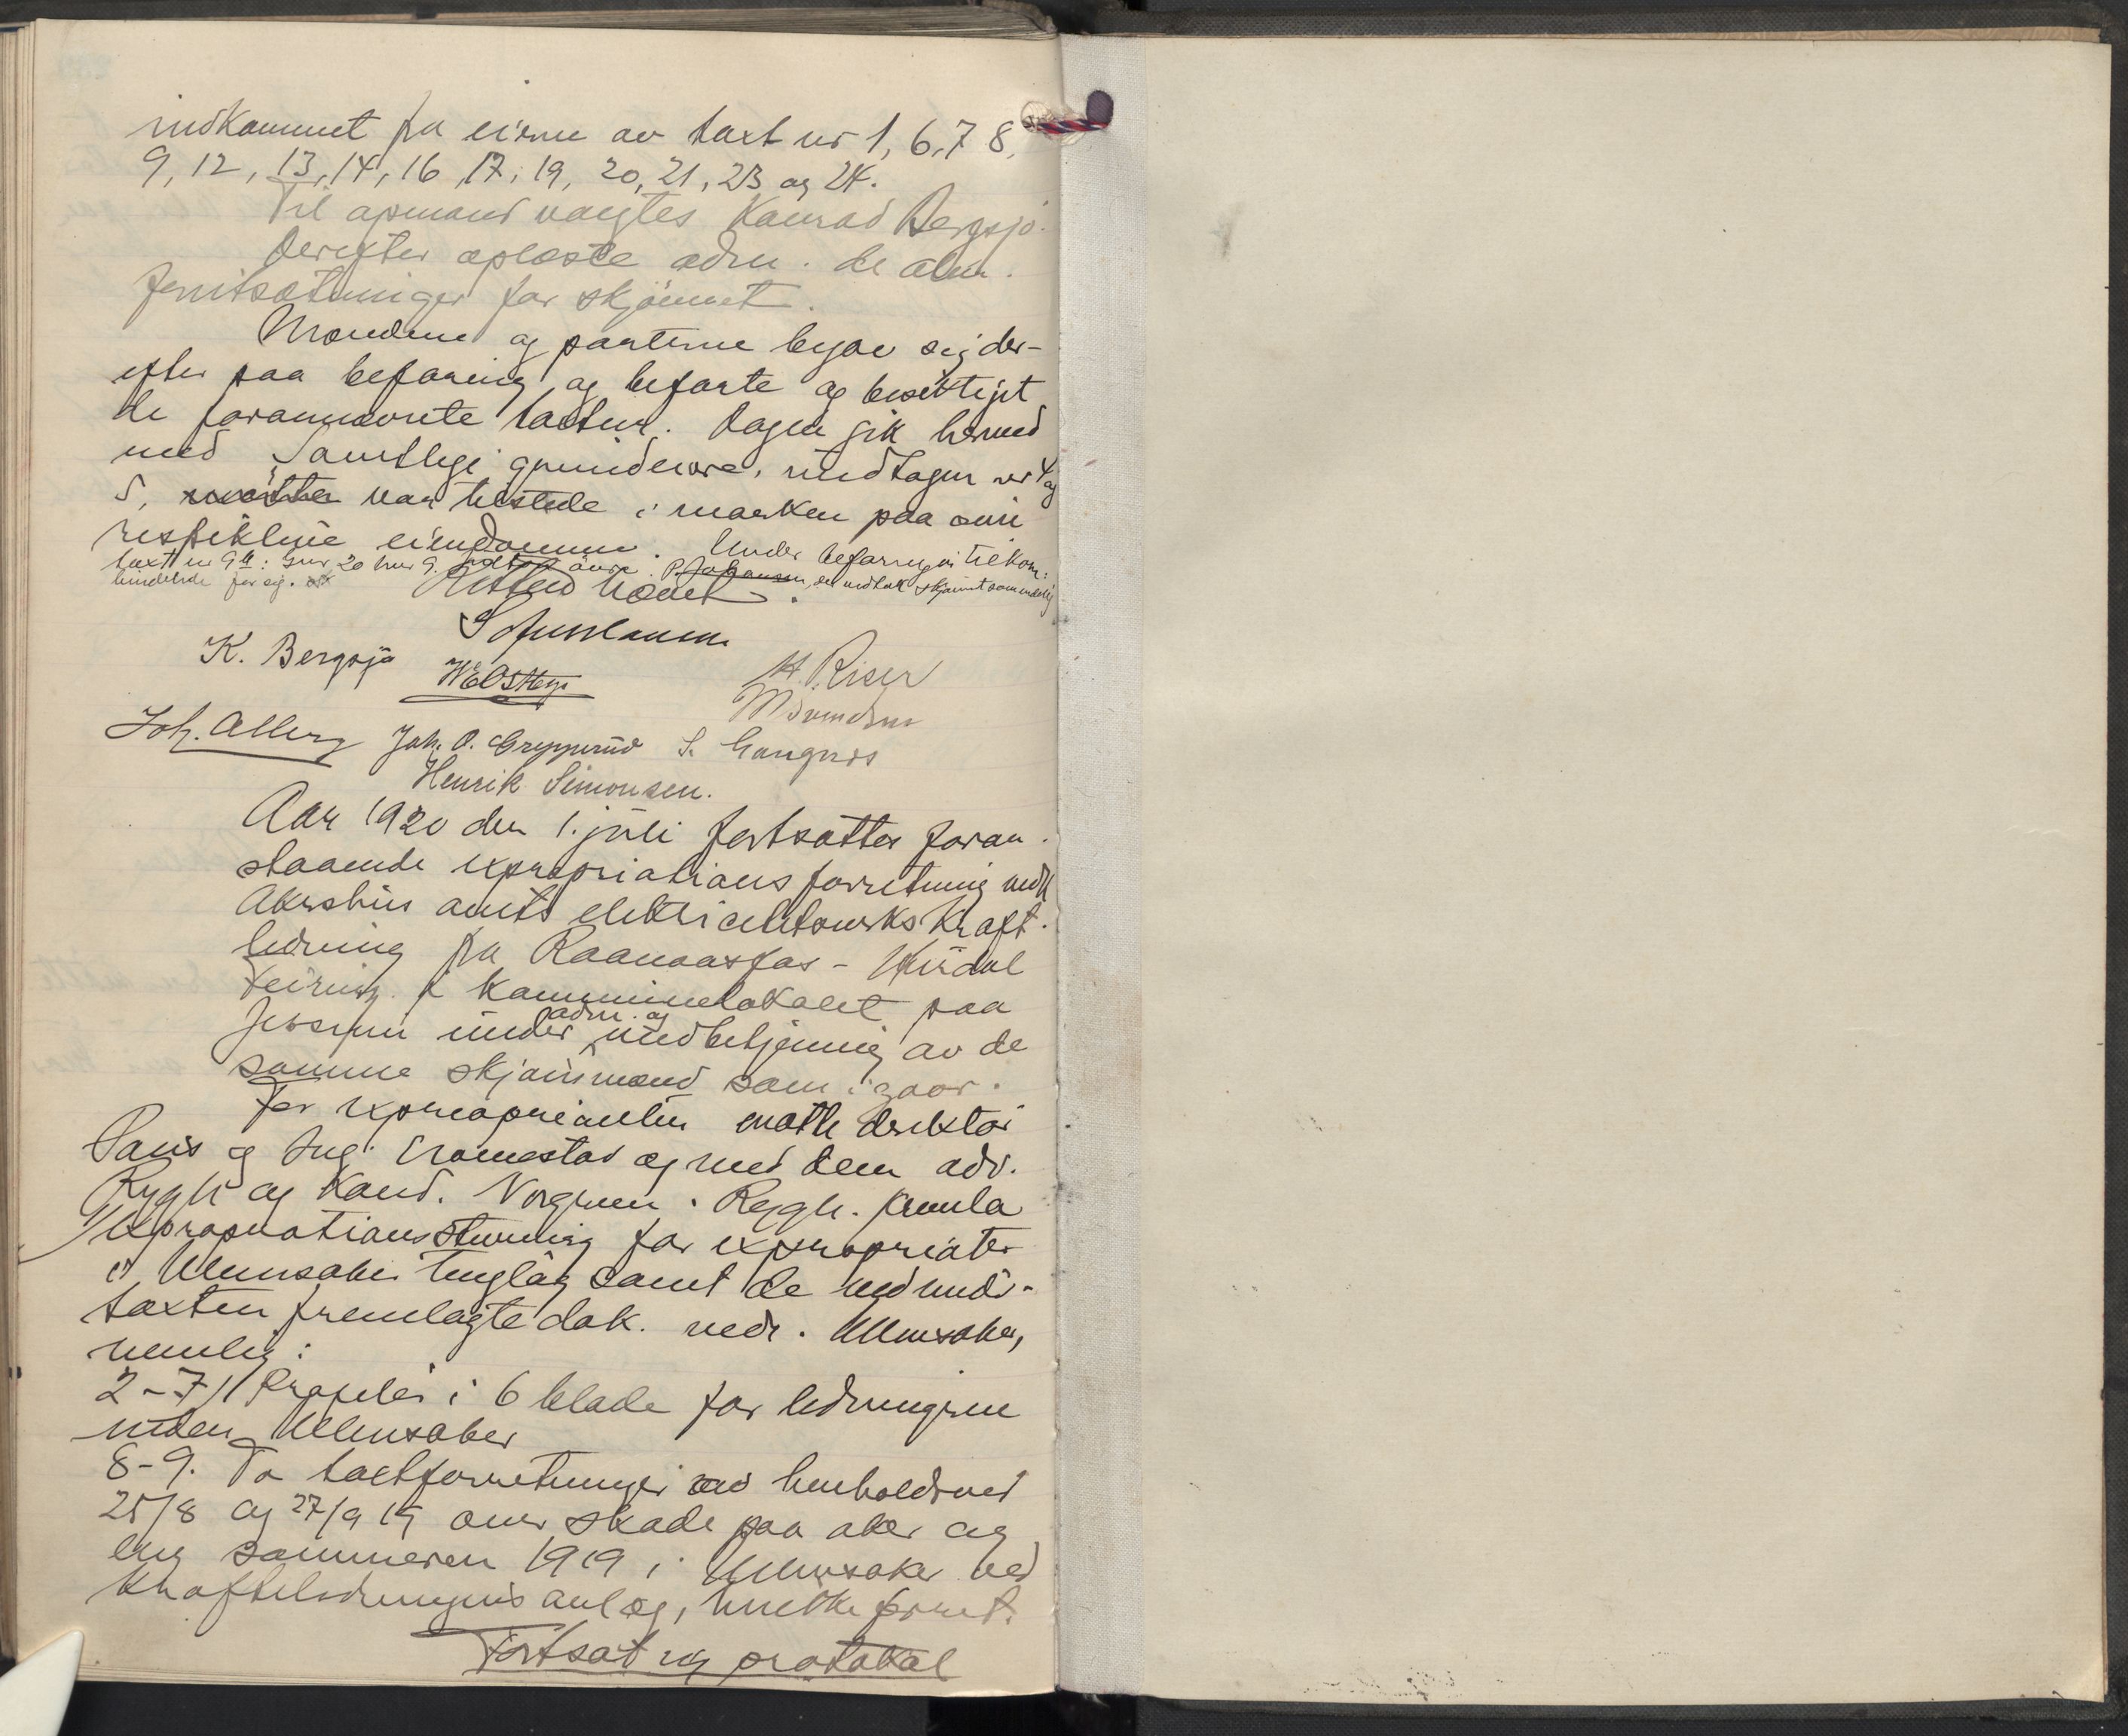 indkommet fra eierne av taxt nr 1, 6, 7 8,
9, 12, 13, 14, 16, 17, 19, 20, 21, 23 og 24.
Til opmand valgtes Konrad Bergsjø.
Derefter oplæste adm. de alm.
forutsætninger for skjønnet.
Mændene og parterne begav sig der-
efter paa befaring og befarte og besigtiget
de forannævnte taxtnr. Dagen gik hermed
med. Samtlige grundeiere, undtagen nr 4 og
5, møtte var tilstede i marken paa sine
respektive eiendomme. Under befaringen tilkom:
taxt nr 9 b: Gnr 20 bnr 9. P. Johansen, der vedtok skjønnet som
bindende for sig.
K. Bergsjø
H. Riser
M Svendsen
Joh. Alberg Joh. O. Grypperud S. Hangnes
Henrik Simonsen.
Aar 1920 den 1. juli fortsattes foran-
staaende expropriations forretning vedk
Akershus amts elektricitetsverks kraft-
ledning fra Raanaasfos - Hurdal
Feiring i kommunelokalet paa
Jessum under adm. og medbetjening av de
samme skjønsmænd som igaar.
For expropriantin møtte direktør
Saxis og Ing. Cramestad og med dem adv.
Rygh og Kand. Norgren. Rygh. fremla
1/ Expropriationsstevning for expropriater
i Ullensaker tinglag samt de ved under-
taxten fremlagte dok. vedr. Ullensaker,
nemlig:
2-7/ Profiler i 6 blade for ledningene
inden Ullensaker
8-9. To taxtforretninger av henholdsvis
25/8 og 27/9 19 over skade paa aker og
eng sommeren 1919 i Ullensaker ved
kraftledningens anlæg, hvilke forret.
Fortsat ny protokol